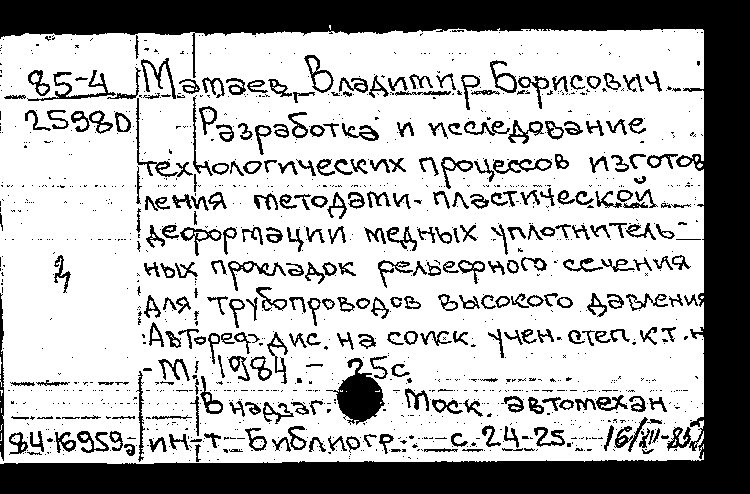 85-4 Матаев, Владимир Борисович
25980 Разработка и исследование
технологических процессов изготов
ления методами пластической
деформации медных уплотнитель-
ных прокладок рельефного сечения
для трубопроводов высокого давления
Автореф. дис. на соиск. учен. степ. к.т.н
- М., 1984. - 25с.
В надзаг. Моск. автомехан.
84-16959а ин-т. Библиогр.: с. 24-25. 16/XII-85